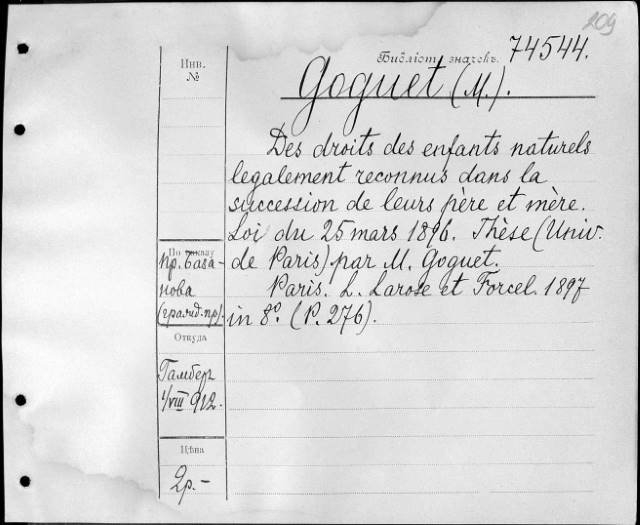 209
Инв.
№
Библіот. значекъ. 74544.
Goguet (M.).
Des droits des enfants naturels
legalement reconnus dans la
succession de leurs père et mère.
Loi du 25 mars 1896. Thèse (Univ.
de Paris) par M. Goguet.
Paris. L. Larose et Forcel. 1897
in 8º. (P. 276).
По заказу
пр. База-
нова
(гражд. пр).
Откуда
Гамбер
1/VIII 912.
Цѣна
2р.-